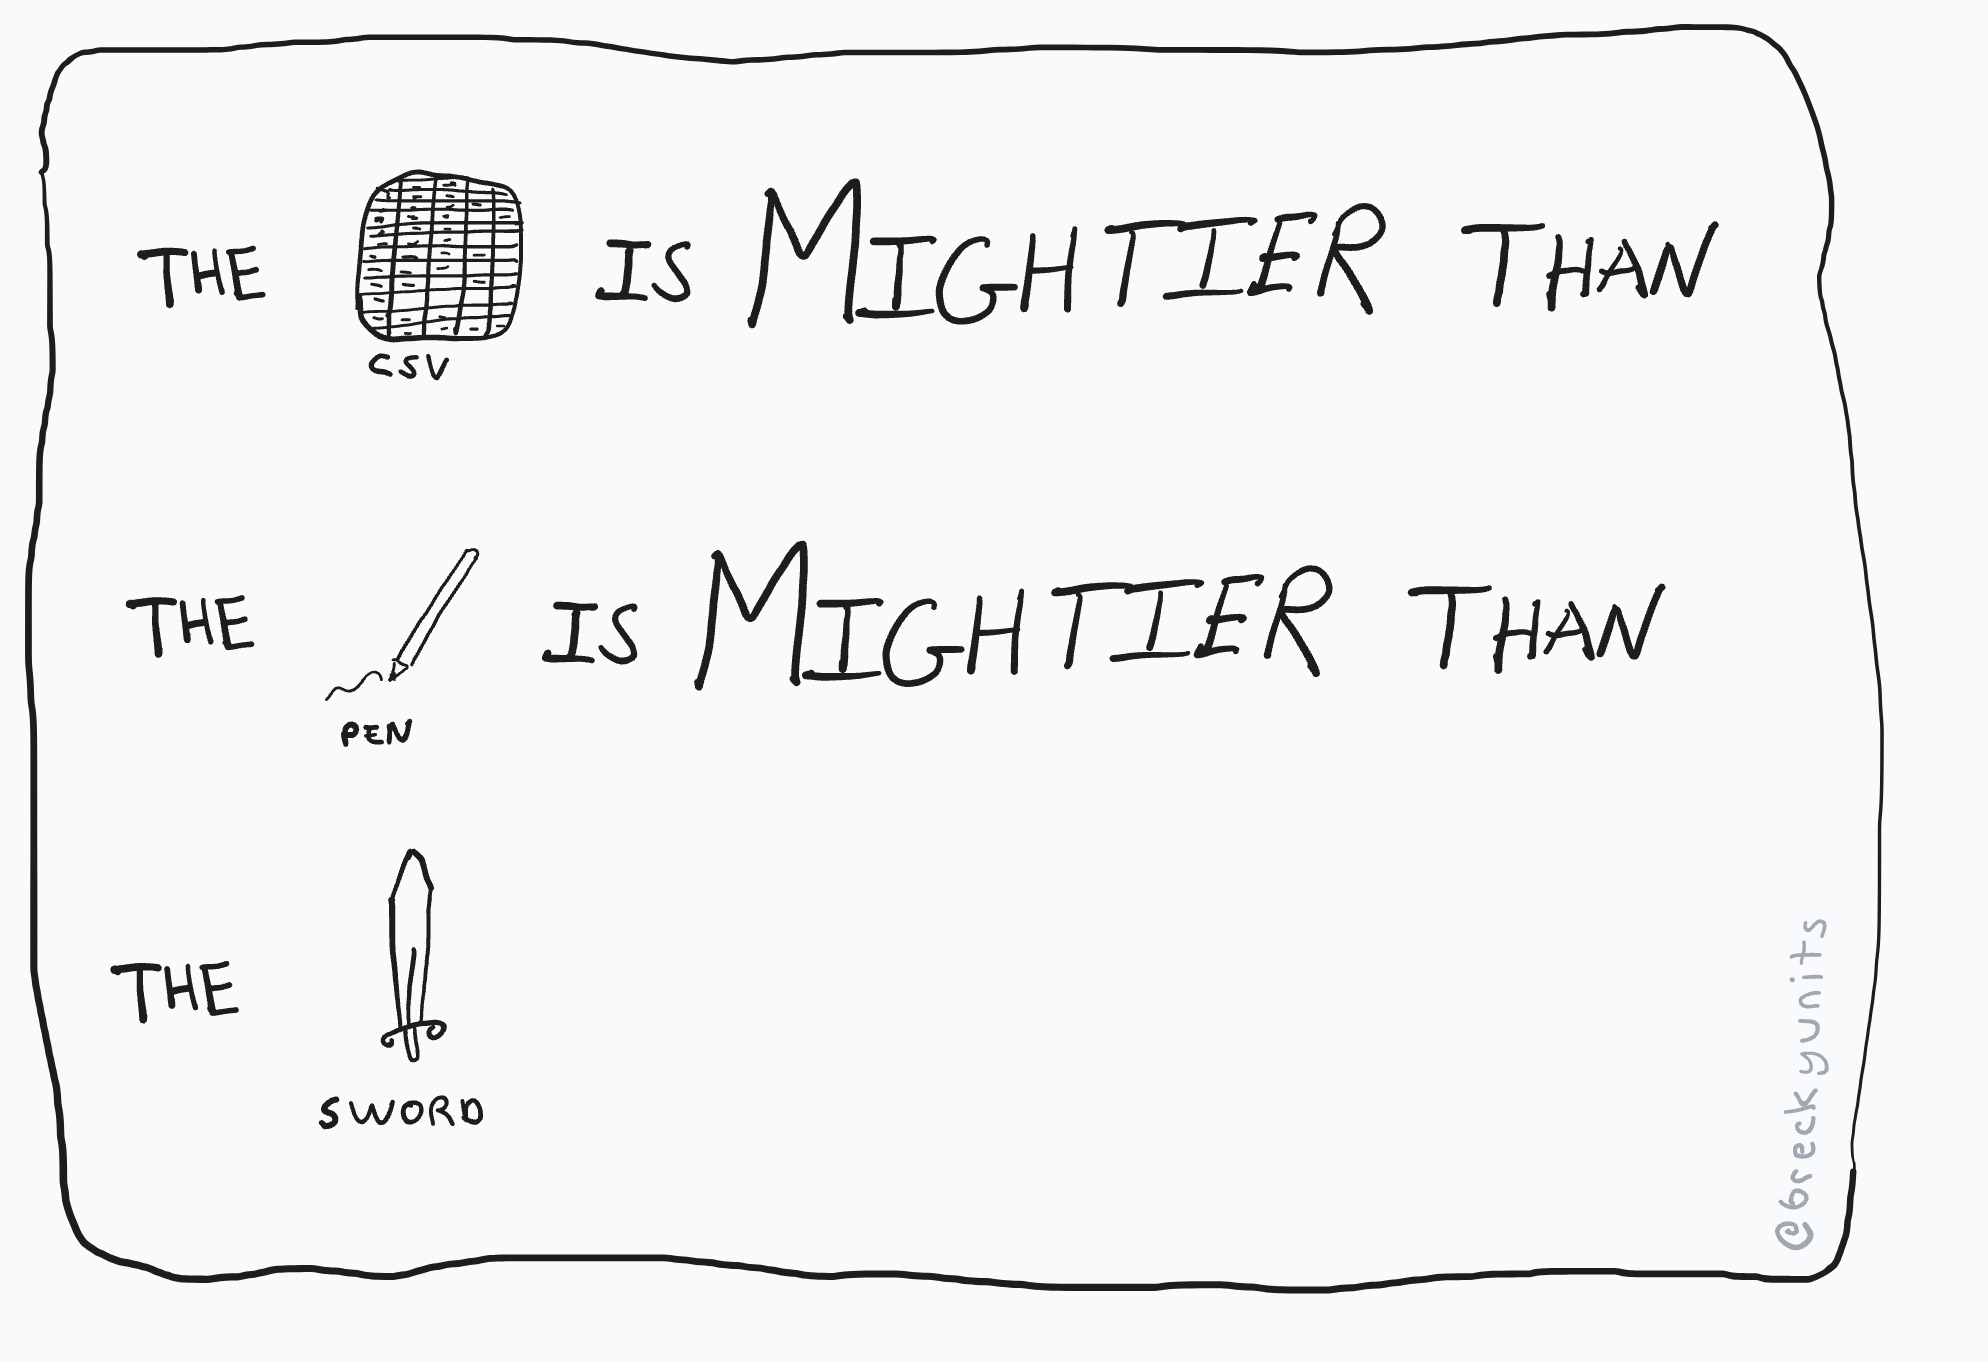 THE CSV IS MIGHTIER THAN
THE PEN IS MIGHTIER THAN
THE SWORD
@breckyunits